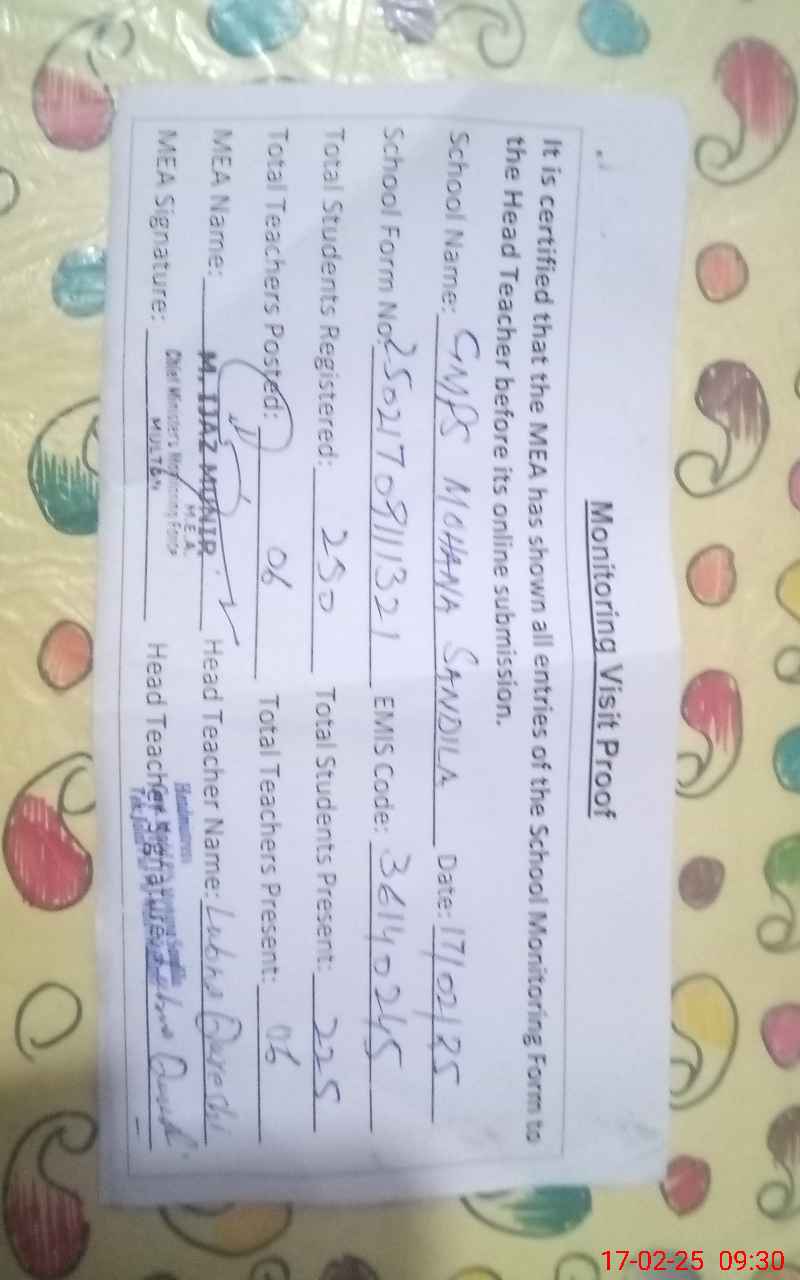 Monitoring Visit Proof
It is certified that the MEA has shown all entries of the School Monitoring Form to
the Head Teacher before its online submission.
School Name: GMPS MOHANA SANDILA Date: 17/02/25
School Form No: 25021709111321 EMIS Code: 36140245
Total Students Registered: 250 Total Students Present: 225
Total Teachers Posted: 06 Total Teachers Present: 06
MEA Name: M. IJAZ MUNIR Head Teacher Name: Lubna Qureshi
M.E.A
Chief Minister's Monitoring Force
MULTAN
MEA Signature: Head Teacher Signature: Lubna
Headmistress
17-02-25 09:30